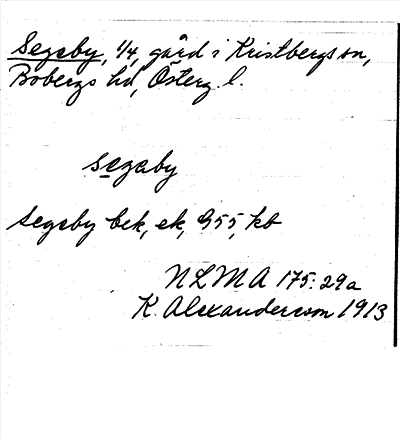 Segeby, 1/4, gård i Kristbergs sn,
Bobergs hd, Österg. l.
segeby
Segeby bek, ek, G55, kb
NLMA 175:29a
K. Alexanderson 1913